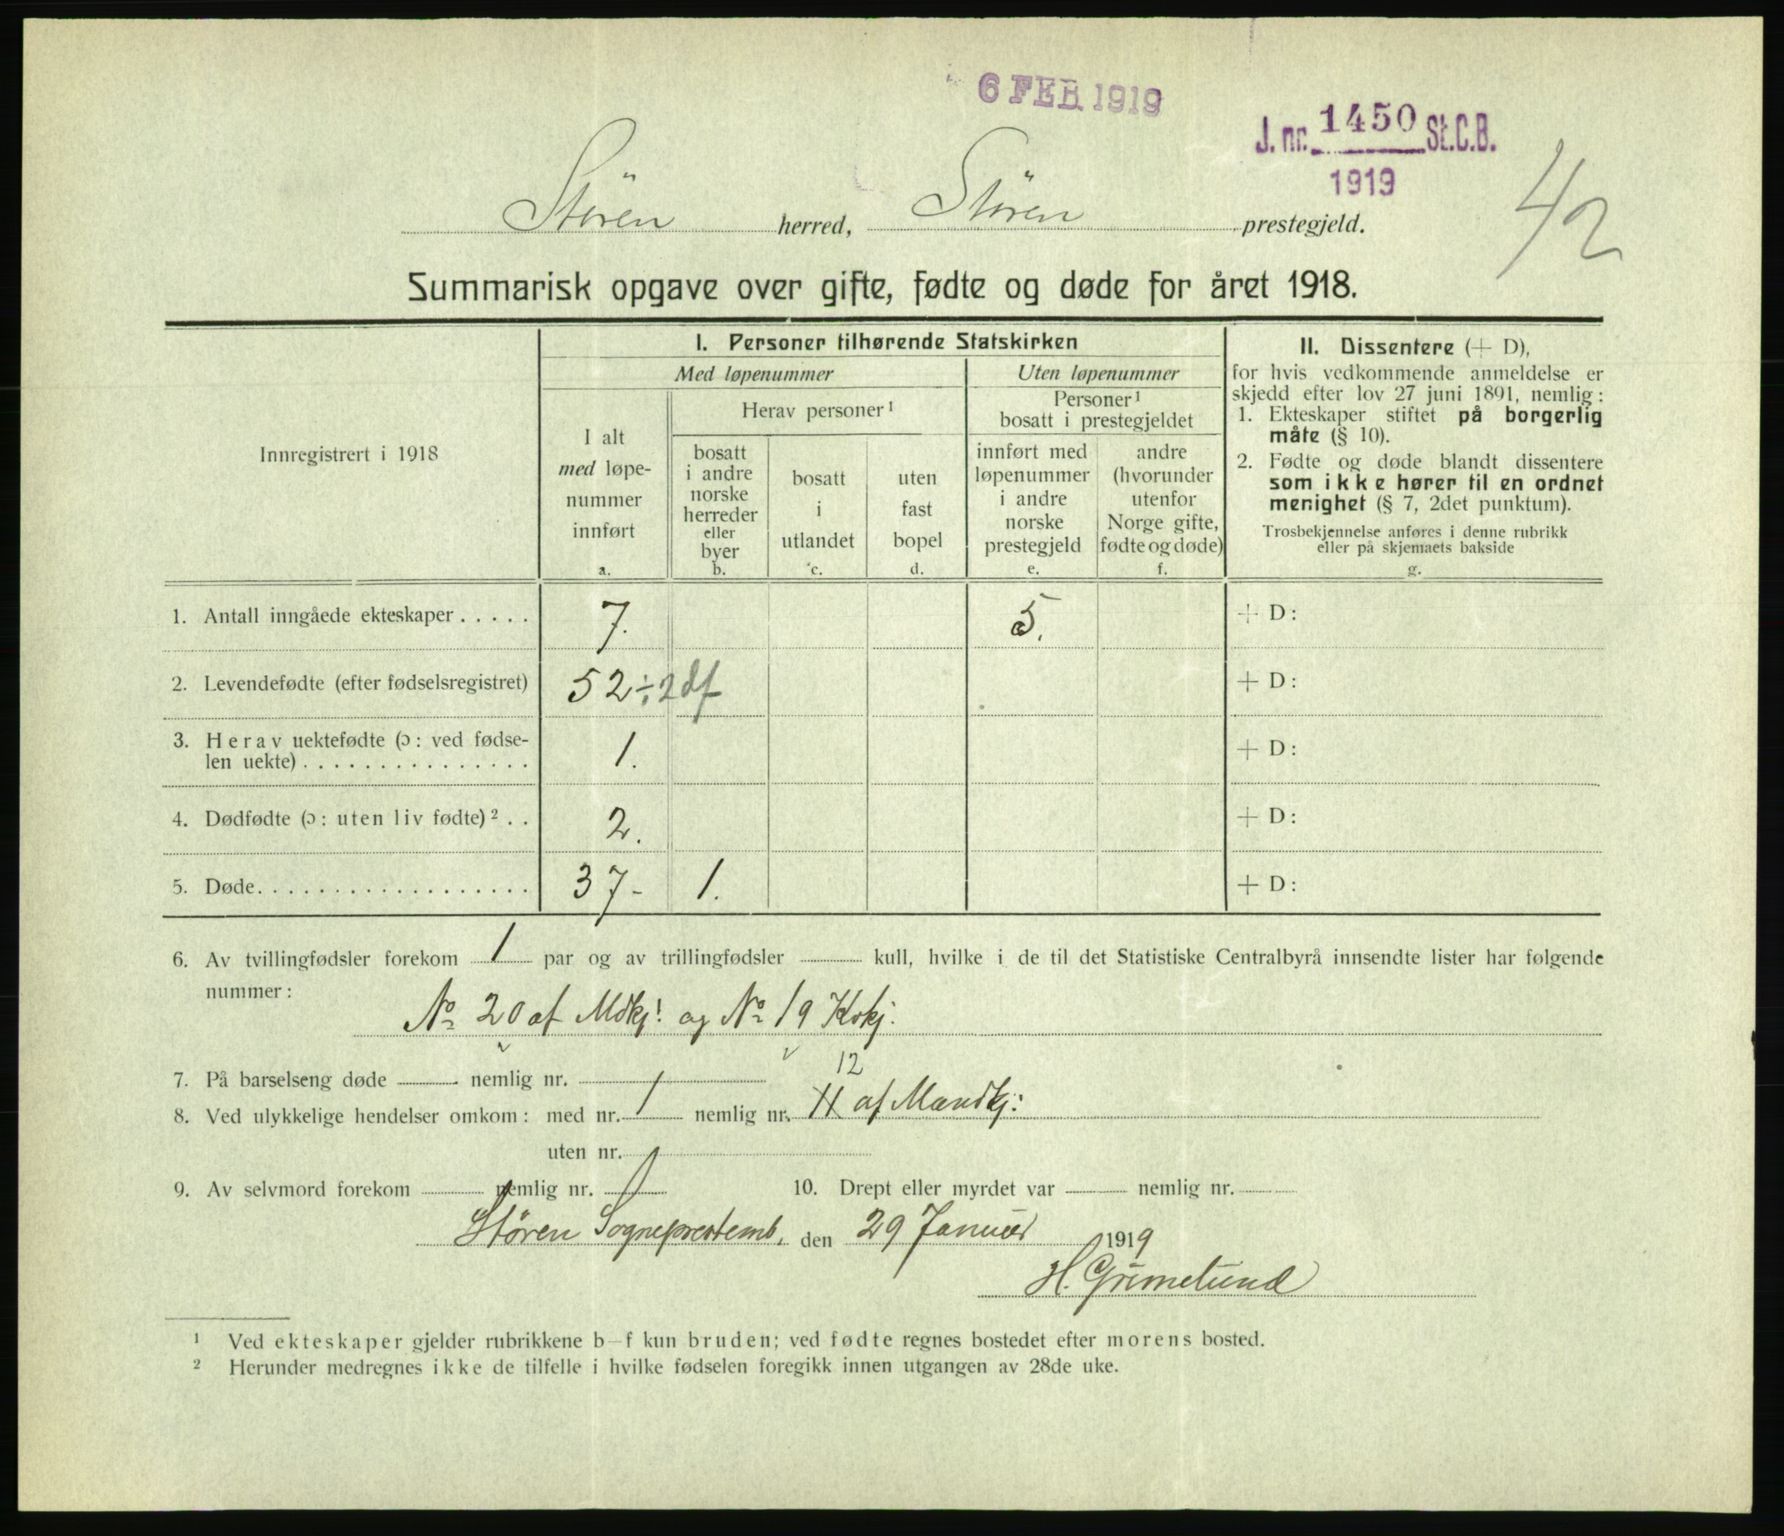 6 FEB 1919
J. nr. 1450 St.C.B.
1919
42
Støren herred, Støren prestegjeld.
Summarisk opgave over gifte, fødte og døde for året 1918.
Innregistrert i 1918
I. Personer tilhørende Statskirken
Med løpenummer
Uten løpenummer
I alt
med løpe-
nummer
innført
a.
Herav personer ¹
bosatt
i andre
norske
herreder
eller
byer
b.
bosatt
i
utlandet
c.
uten
fast
bopel
d.
Personer ¹
bosatt i prestegjeldet
innført med
løpenummer
i andre
norske
prestegjeld
e.
andre
(hvorunder
utenfor
Norge gifte,
fødte og døde)
f.
II. Dissentere (+ D),
for hvis vedkommende anmeldelse er
skjedd efter lov 27 juni 1891, nemlig:
1. Ekteskaper stiftet på borgerlig
måte (§ 10).
2. Fødte og døde blandt dissentere
som ikke hører til en ordnet
menighet (§ 7, 2det punktum).
Trosbekjennelse anføres i denne rubrikk
eller på skjemaets bakside
g.
1. Antall inngåede ekteskaper ..... 7. 5. + D:
2. Levendefødte (efter fødselsregistret) 52 ÷ 2 df + D:
3. Herav uektefødte (ɔ: ved fødse-
len uekte) ............... 1. + D:
4. Dødfødte (ɔ: uten liv fødte) ² .. 2. + D:
5. Døde .................. 37- 1. + D:
6. Av tvillingfødsler forekom 1 par og av trillingfødsler kull, hvilke i de til det Statistiske Centralbyrå innsendte lister har følgende
nummer:
No 20 af Mdkj! og No 19 Kvkj.
7. På barselseng døde nemlig nr.
12
8. Ved ulykkelige hendelser omkom: med nr. 1 nemlig nr. 11 af Mandkj:
uten nr.
9. Av selvmord forekom nemlig nr. 10. Drept eller myrdet var nemlig nr.
Støren Sogneprestemb. den 29 Januar 1919
H. Grimelund
¹ Ved ekteskaper gjelder rubrikkene b–f kun bruden; ved fødte regnes bostedet efter morens bosted.
² Herunder medregnes ikke de tilfelle i hvilke fødselen foregikk innen utgangen av 28de uke.